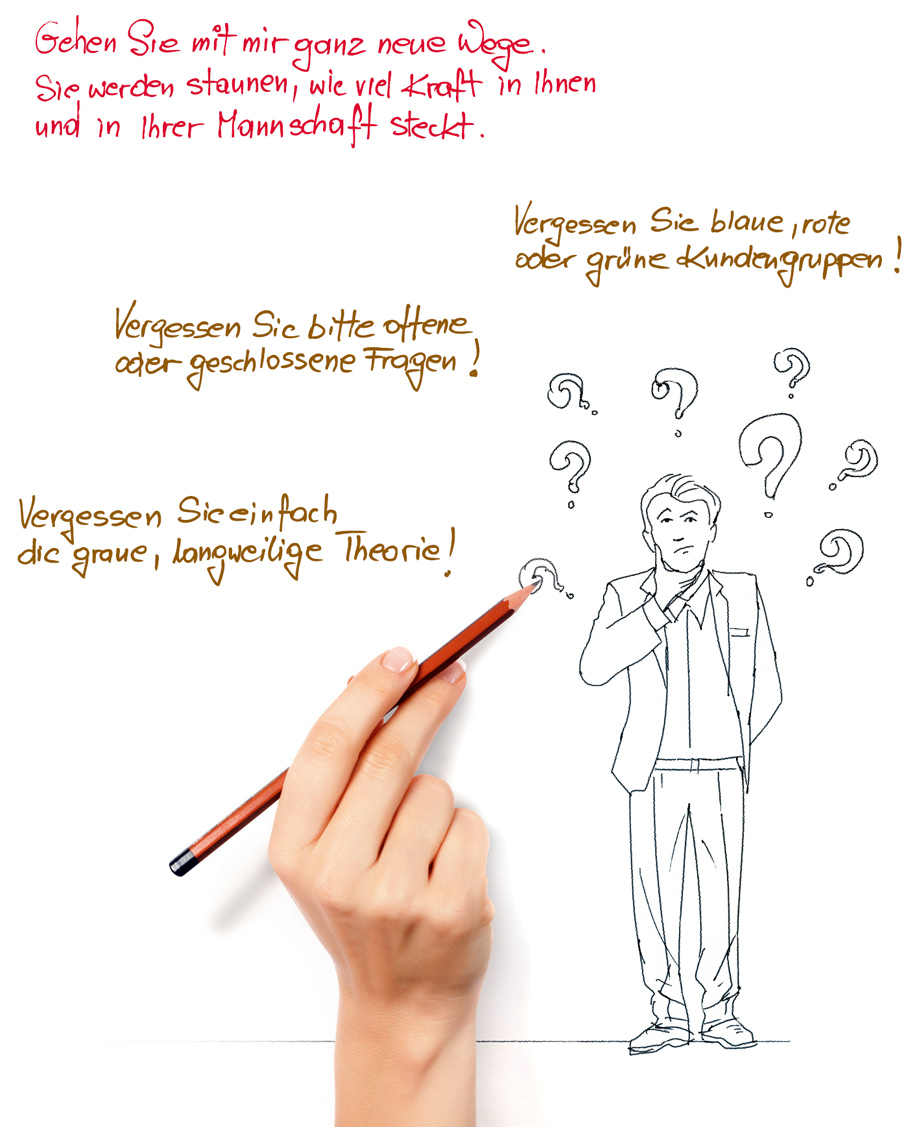 Gehen Sie mit mir ganz neue Wege.
Sie werden staunen, wie viel Kraft in Ihnen
und in Ihrer Mannschaft steckt.
Vergessen Sie blaue, rote
oder grüne Kundengruppen!
Vergessen Sie bitte offene
oder geschlossene Fragen!
Vergessen Sie einfach
die graue, langweilige Theorie!